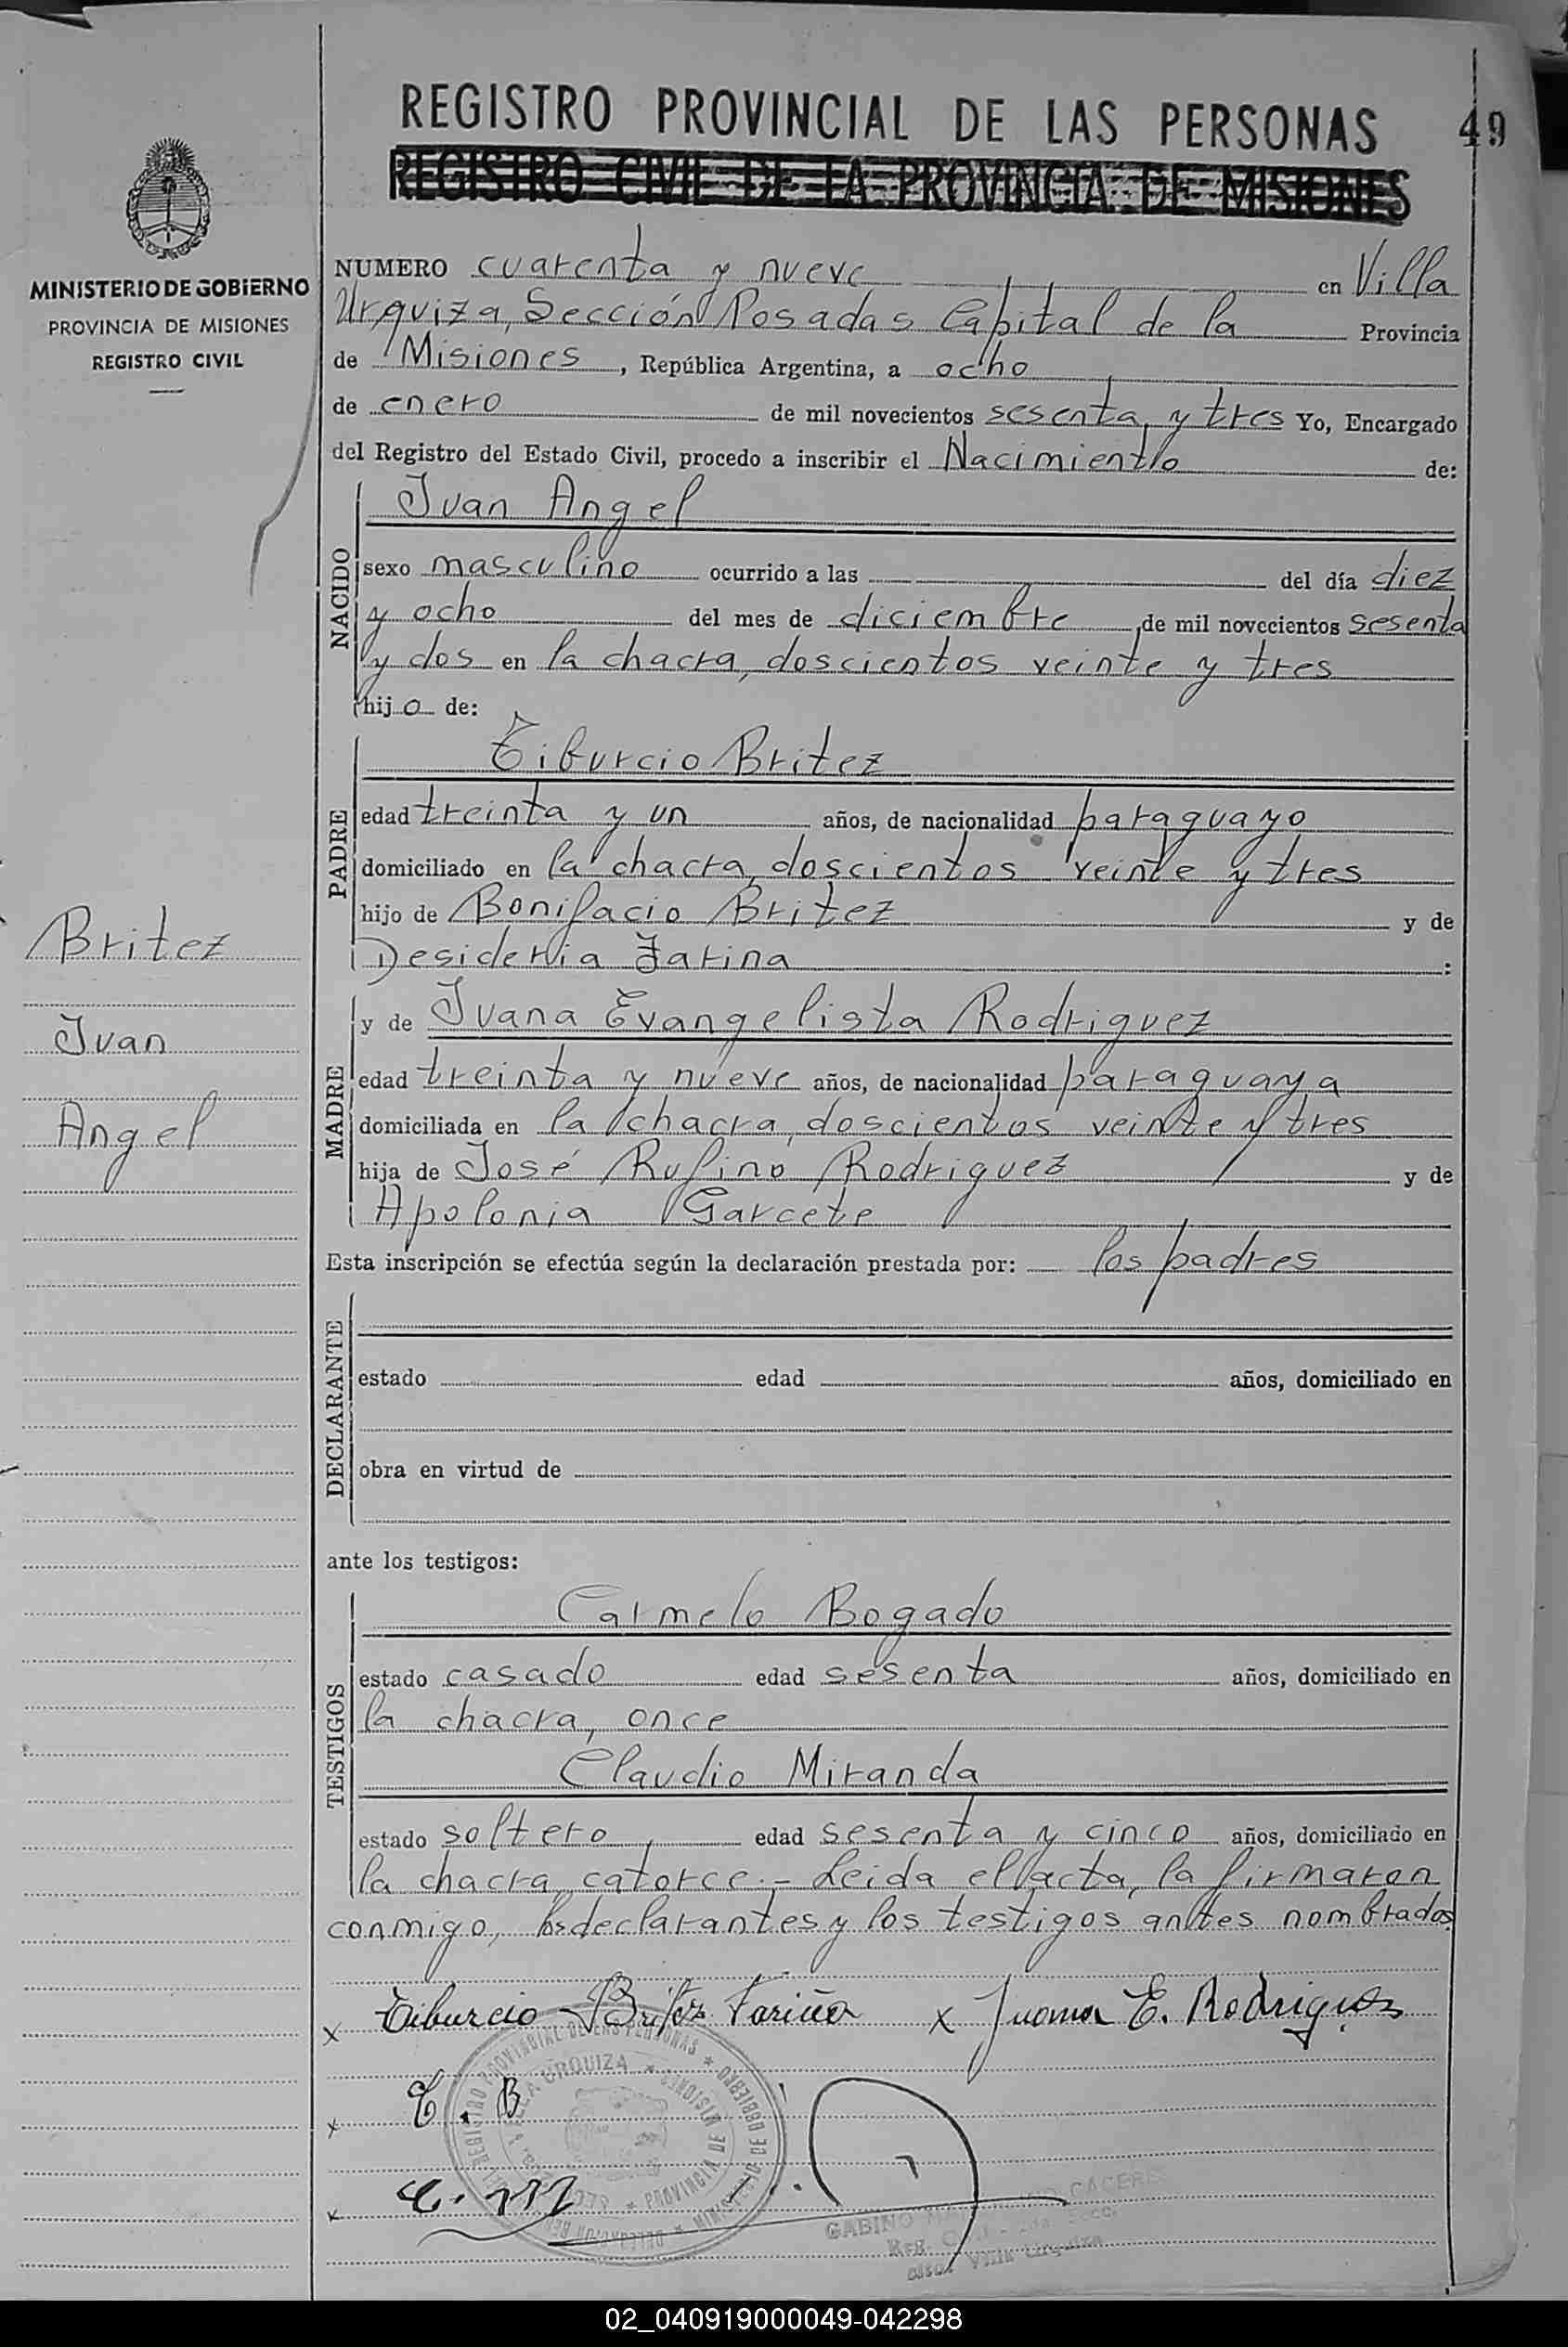 REGISTRO PROVINCIAL DE LAS PERSONAS 49
REGISTRO CIVIL DE LA PROVINCIA DE MISIONES
MINISTERIO DE GOBIERNO
PROVINCIA DE MISIONES
REGISTRO CIVIL
NUMERO cuarenta y nueve en Villa
Urquiza, Sección Posadas Capital de la Provincia
de Misiones, República Argentina, a ocho
de enero de mil novecientos sesenta y tres Yo, Encargado
del Registro del Estado Civil, procedo a inscribir el Nacimiento de:
NACIDO
Juan Angel
sexo masculino ocurrido a las del día diez
y ocho del mes de diciembre, de mil novecientos sesenta
y dos en la chacra, doscientos veinte y tres
hijo de:
PADRE
Tiburcio Britez
edad treinta y un años, de nacionalidad paraguayo
domiciliado en la chacra, doscientos veinte y tres
hijo de Bonifacio Britez y de
Desideria Farina:
Britez
Juan
Angel
MADRE
y de Juana Evangelista Rodriguez
edad treinta y nueve años, de nacionalidad paraguaya
domiciliada en la chacra, doscientos veinte y tres
hija de José Rufino Rodriguez y de
Apolonia Garcete
Esta inscripción se efectúa según la declaración prestada por: los padres
DECLARANTE
estado edad años, domiciliado en
obra en virtud de
ante los testigos:
TESTIGOS
Carmelo Bogado
estado casado edad sesenta años, domiciliado en
la chacra, once
Claudio Miranda
estado soltero, edad sesenta y cinco años, domiciliado en
la chacra, catorce.- Leida el acta, la firmaron
conmigo, los declarantes y los testigos antes nombrados
x Tiburcio Britez Fariña x Juana E. Rodriguez
x T. B
x
REGISTRO PROVINCIAL DE LAS PERSONAS * MINISTERIO DE GOBIERNO
VILLA URQUIZA * PROVINCIA DE MISIONES
GABINO CACERES
Villa Urquiza
02_040919000049-042298